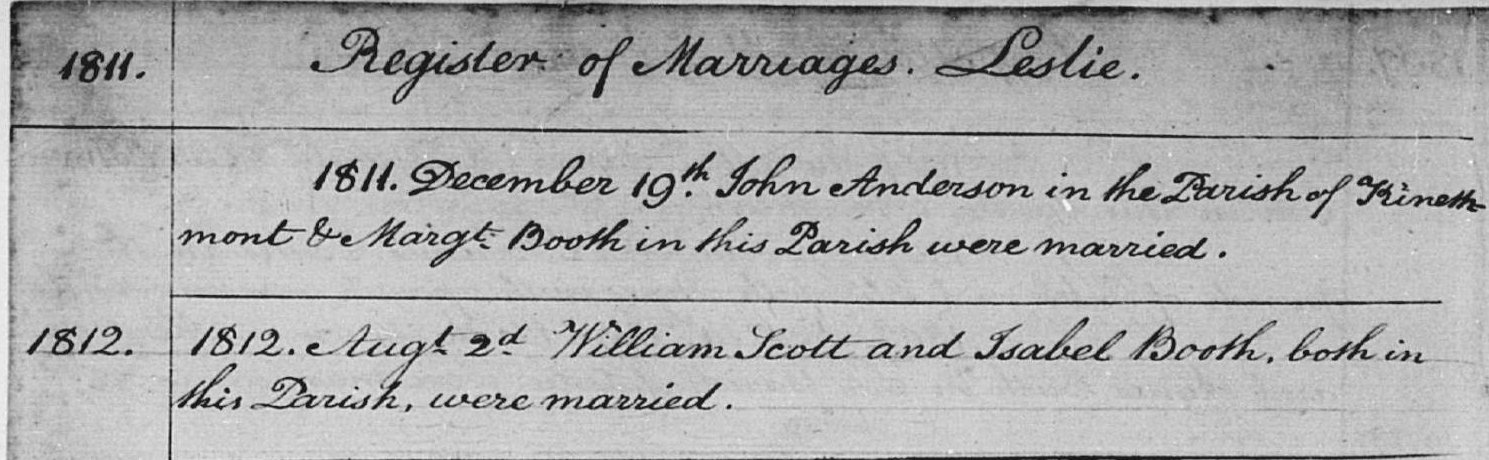 1811. Register of Marriages. Leslie.
1811. December 19th. John Anderson in the Parish of Kineth-
mont & Margt. Booth in this Parish were married.
1812. 1812. Augt. 2d. William Scott and Isabel Booth, both in
this Parish, were married.